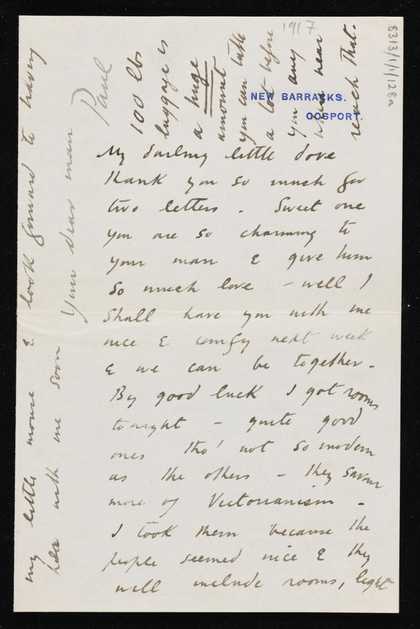 1917
8313/1/1/128a
NEW BARRACKS.
GOSPORT.
My darling little dove
thank you so much for
two letters. Sweet one
you are so charming to
your man & give him
so much love - well I
shall have you with me
nice & comfy next week
& we can be together.
By good luck I got rooms
tonight - quite good
ones tho' not so modern
as the others - they savour
more of Victorianism -
I took them because the
people seemed nice & they
will include rooms, light
my little mouse & look forward to having
her with me soon
Your dear man
Paul
100 lbs
luggage is
a huge
amount
you can take
a lot before
you any
near
reach that.